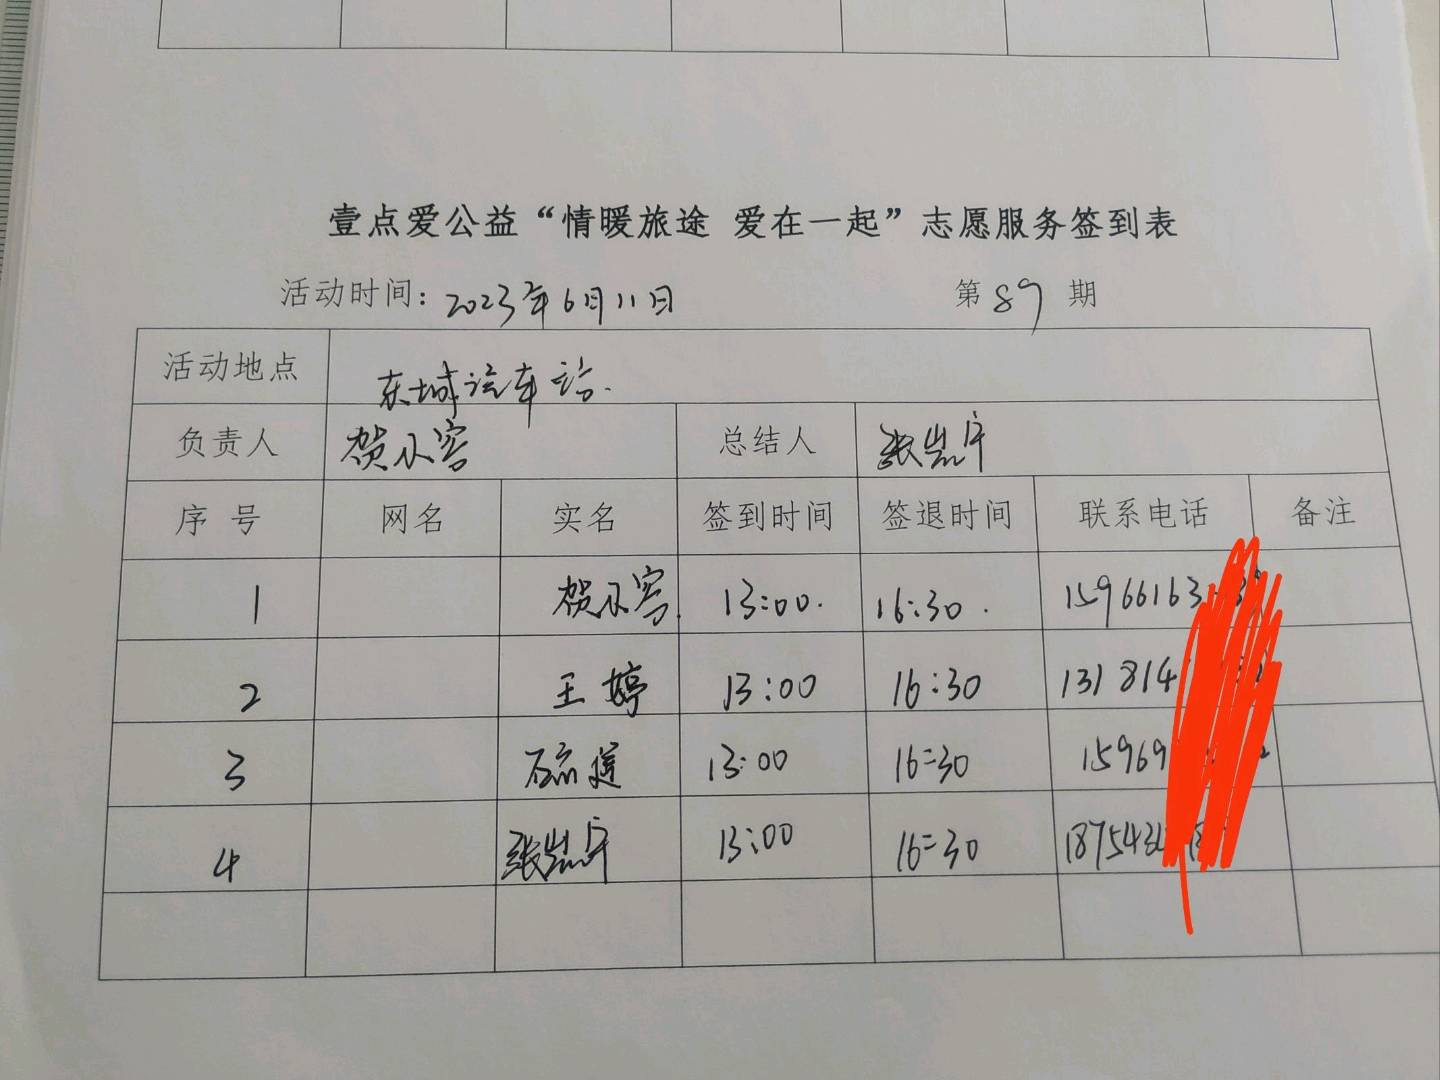 壹点爱公益“情暖旅途 爱在一起”志愿服务签到表
活动时间：2023年6月11日 第89期
活动地点 东城汽车站.
负责人 贺小容 总结人 张岩
序号 网名 实名 签到时间 签退时间 联系电话 备注
1 贺小容 13:00. 16:30. 15966163
2 王婷 13:00 16:30 131814
3 13:00 16:30 15969
4 张岩 13:00 16:30 187543